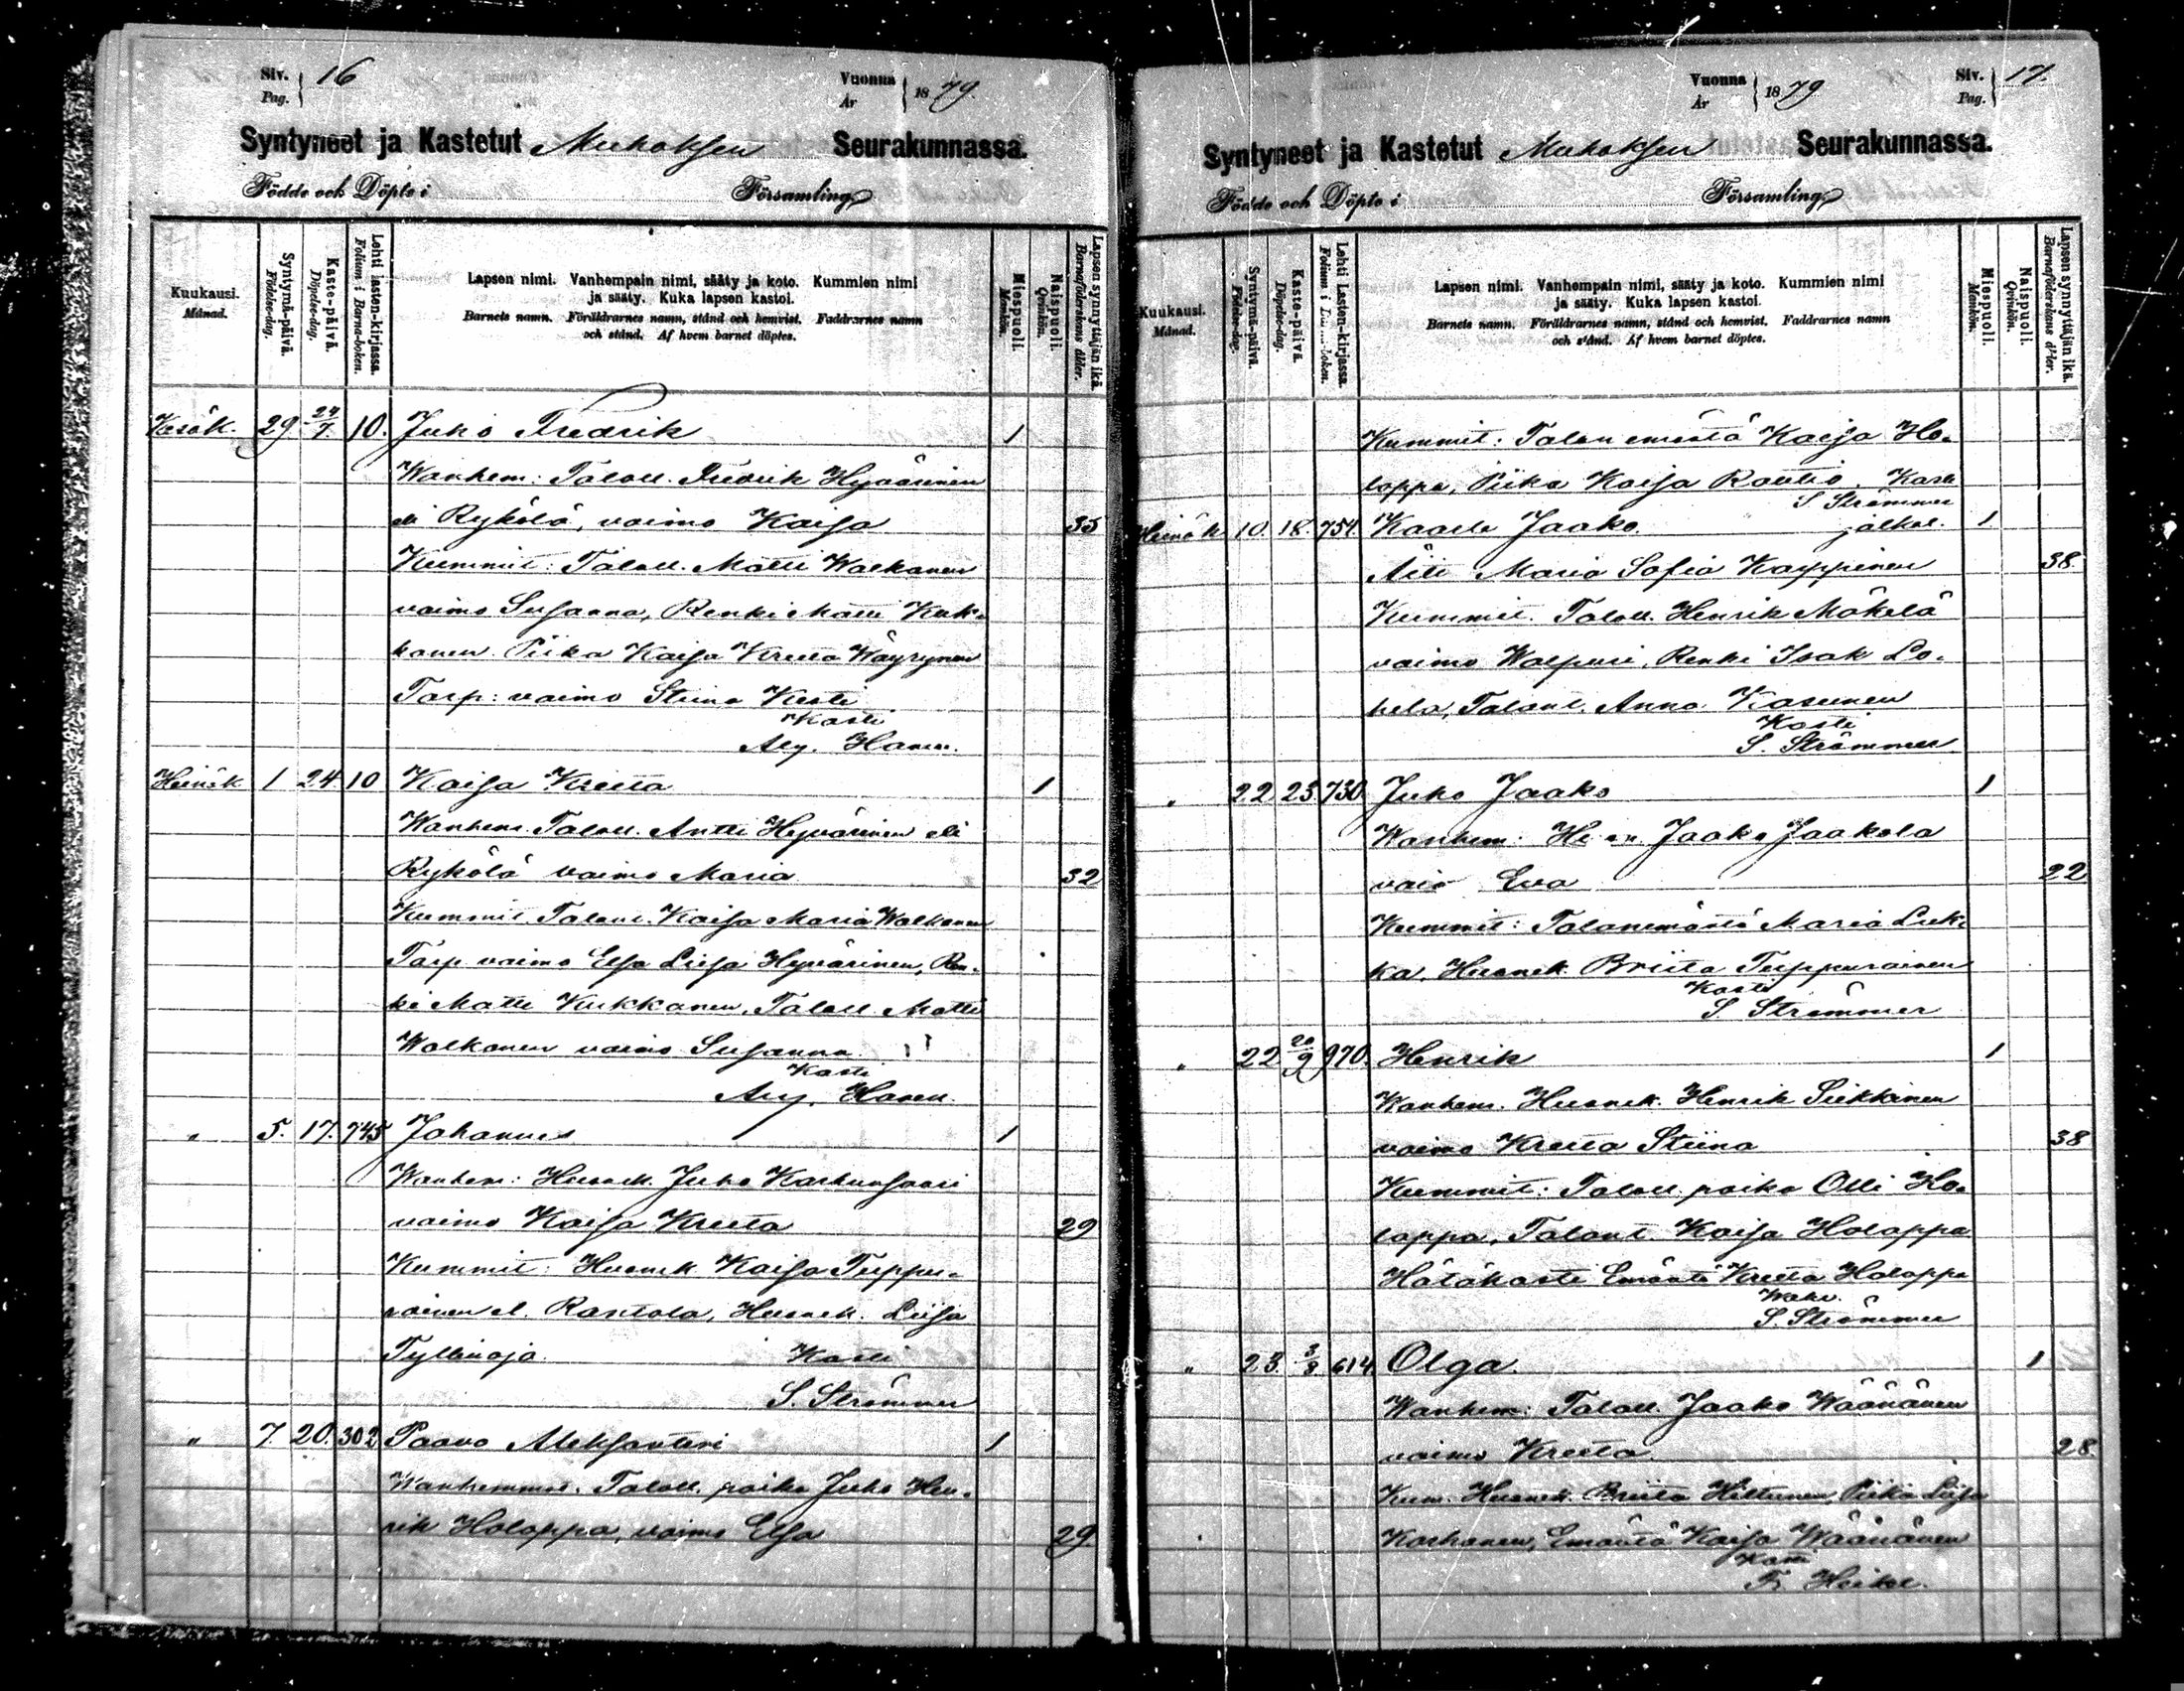 Siv. Pag. 16
Vuonna År 1879.
Syntyneet ja Kastetut Muhoksen Seurakunnassa.
Födde och Döpte i Församling
Kuukausi. Månad.
Syntymä-päivä. Födelse-dag.
Kaste-päivä. Döpelse-dag.
Lehti lasten-kirjassa. Folium i Barna-boken.
Lapsen nimi. Vanhempain nimi, sääty ja koto. Kummien nimi
ja sääty. Kuka lapsen kastoi.
Barnets namn. Föräldrarnes namn, stånd och hemvist. Faddrarnes namn
och stånd. Af hvem barnet döptes.
Miespuoli. Mankön.
Naispuoli. Qvinkön.
Lapsen synnyttäjän ikä. Barnaföderskans ålder.
Kesäk. 29 24/7. 10. Juho Fredrik 1
Wanhem: Taloll. Fredrik Hyvärinen
eli Rykölä, vaimo Kaisa 35
Kummit: Taloll. Matti Walkanen
vaimo Susanna, Renki Matti Kuk-
kanen. Piika Kaisa Kreeta Wäyrynen
Torp: vaimo Stiina Kesti
Kasti
Haven.
Heinäk 1 24 10 Kaisa Kreeta 1
Wanhem. Taloll. Antti Hyvärinen eli
Rykölä vaimo Maria 32
Kummit. Talont. Kaisa Maria Walkanen
Torp. vaimo Elsa Liisa Hyvärinen, Ren-
ki Matti Kukkanen, Taloll. Matti
Walkanen vaimo Susanna
Kasti
Haven.
" 5. 17. 745 Johannes 1
Wanhem: Huonek. Juho Karhunsaari
vaimo Kaisa Kreeta 29
Kummit: Huonek. Kaisa Tuppu-
rainen el. Rantola, Huonek. Liisa
Tyllinoja. Kasti
S. Strömmer
" 7. 20. 302 Paavo Aleksanteri 1
Wanhemmat. Taloll. poika Juho Hen-
rik Holappa, vaimo Elsa 29.
Vuonna År 1879
Siv. Pag. 17.
Syntyneet ja Kastetut Muhoksen Seurakunnassa.
Födde och Döpte i Församling
Kuukausi. Månad.
Syntymä-päivä. Födelse-dag.
Kaste-päivä. Döpelse-dag.
Lehti Lasten-kirjassa. Folium i boken.
Lapsen nimi. Vanhempain nimi, sääty ja koto. Kummien nimi
ja sääty. Kuka lapsen kastoi.
Barnets namn. Föräldrarnes namn, stånd och hemvist. Faddrarnes namn
och stånd. Af hvem barnet döptes.
Miespuoli. Mankön.
Naispuoli. Qvinkön.
Lapsen synnyttäjän ikä. Barnaföderskans ålder.
Kummit: Talon emäntä Kaisa Ho-
lappa, Piika Kaisa Rautio. Kasti
S. Strömmer
Heinäk 10. 18. 754. Kaarle Jaako. 1
Äiti Maria Sofia Karppinen 38.
Kummit. Taloll. Henrik Mäkelä
vaimo Walpuri, Renki Isak Lo-
hela, Talont. Anna Kasurinen
Kasti
S. Strömmer
" 22 23. 730. Juho Jaako 1
Wanhem: Jaako Jaakola
vaio Eva 22
Kummit: Talonemäntä Maria Luk-
ka, Huonek. Briita Tuppurainen
Kasti
S Strömmer
" 22 20/9 970. Henrik 1
Wanhem. Huonek. Henrik Siekkinen
vaimo Kreeta Stiina 38
Kummit: Taloll. poika Olli Ho-
lappa, Talont. Kaisa Holappa
Hätäkasti Emäntä Kreeta Holappa
Wahv.
S. Strömmer
" 23. 3/8. 614 Olga. 1
Wanhem: Taloll. Jaako Wäänänen
vaimo Kreeta. 28.
Kum. Huonek. Briita Hiltunen, Piika Liisa
Karhanen, Emäntä Kaisa Wäänänen
Kasti
F. Heikel.